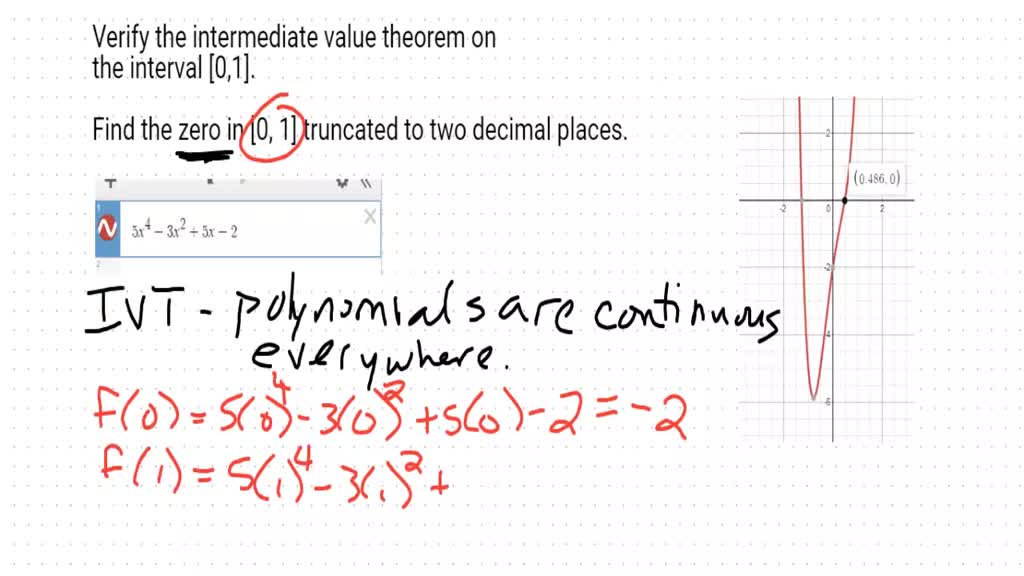 Verify the intermediate value theorem on
the interval [0,1].
Find the zero in [0, 1] truncated to two decimal places.
1
5x⁴ − 3x² + 5x − 2
2
IVT - polynomials are continuous
everywhere.
f(0) = 5(0)⁴ - 3(0)² + 5(0) - 2 = -2
f(1) = 5(1)⁴ - 3(1)² +
2
(0.486, 0)
-2 0 2
-2
-4
-6